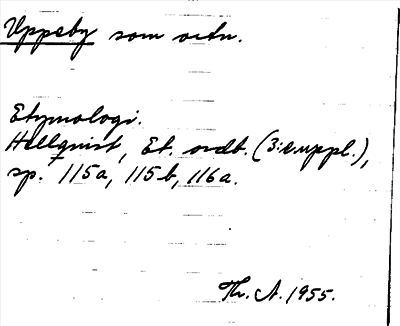 Uppsby som ortn.
Etymologi.
Hellquist, Et. ordb. (3:e uppl.),
sp. 115a, 115b, 116a.
Th. A. 1955.